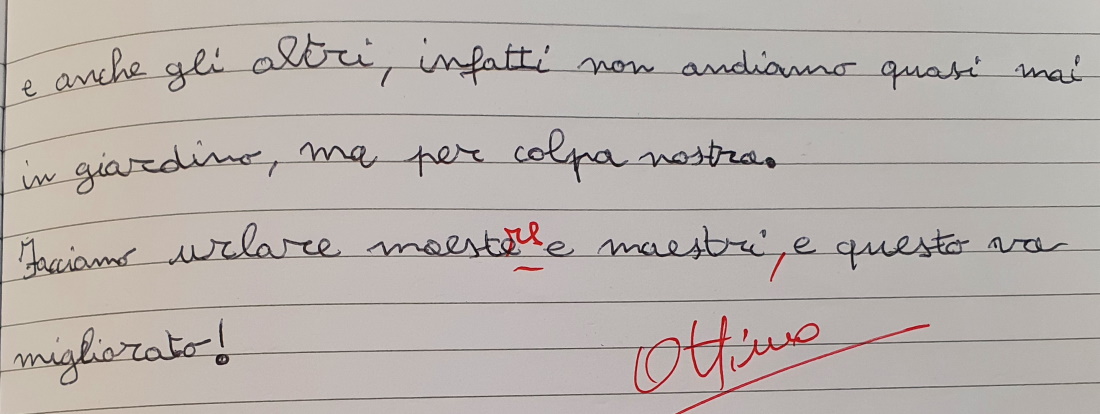 e anche gli altri, infatti non andiamo quasi mai
in giardino, ma per colpa nostra.
Facciamo urlare maestre e maestri, e questo va
migliorato!
Ottimo